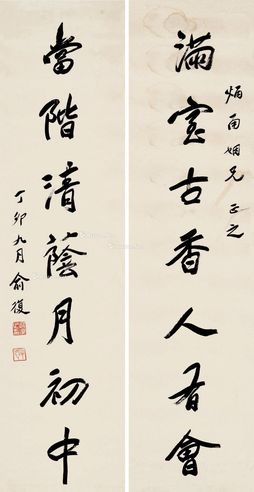 炳甫姻兄 正之
满室古香人有會
當階清蔭月初中
丁卯九月 俞復